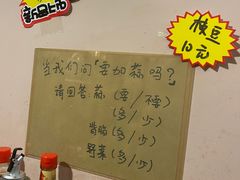 新品上市
枝豆
10元
当我们问“要加蒜吗?”
请回答 蒜 (要/不要)
(多/少)
背脂 (多/少)
野菜 (多/少)